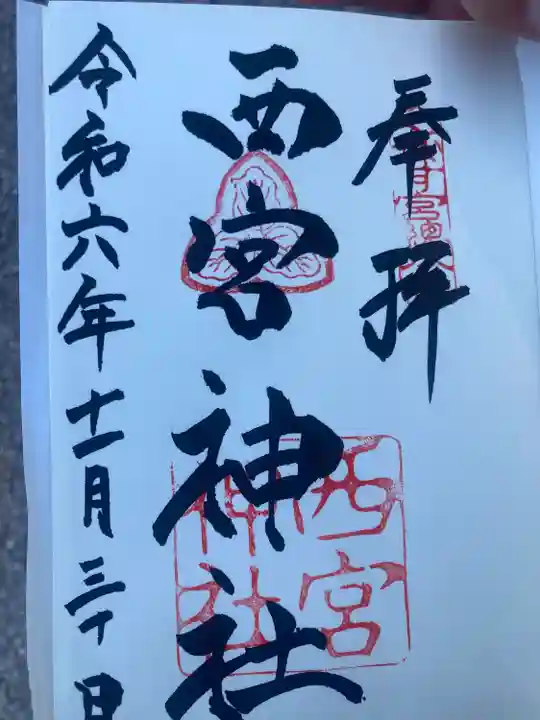 奉拝
西宮神社
西宮
神社
令和六年十一月三十日